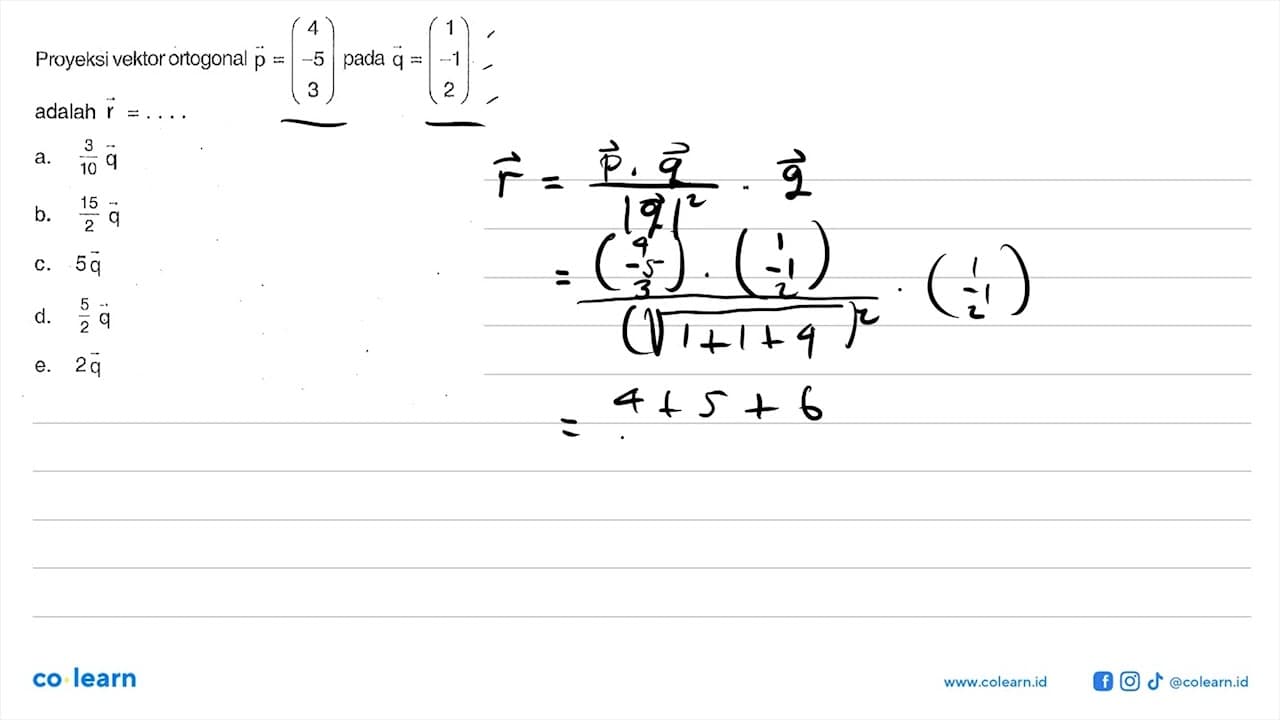 Proyeksi vektor ortogonal p⃗ = (4 −5 3) pada q⃗ = (1 −1 2)
adalah r⃗ = ....
a. 3/10 q⃗
b. 15/2 q⃗
c. 5q⃗
d. 5/2 q⃗
e. 2q⃗
r⃗ = p⃗ . q⃗ / |q⃗|² . q⃗
= (4 -5 3) . (1 -1 2) / (√1+1+4)² . (1 -1 2)
= 4 + 5 + 6
co·learn
www.colearn.id
@colearn.id